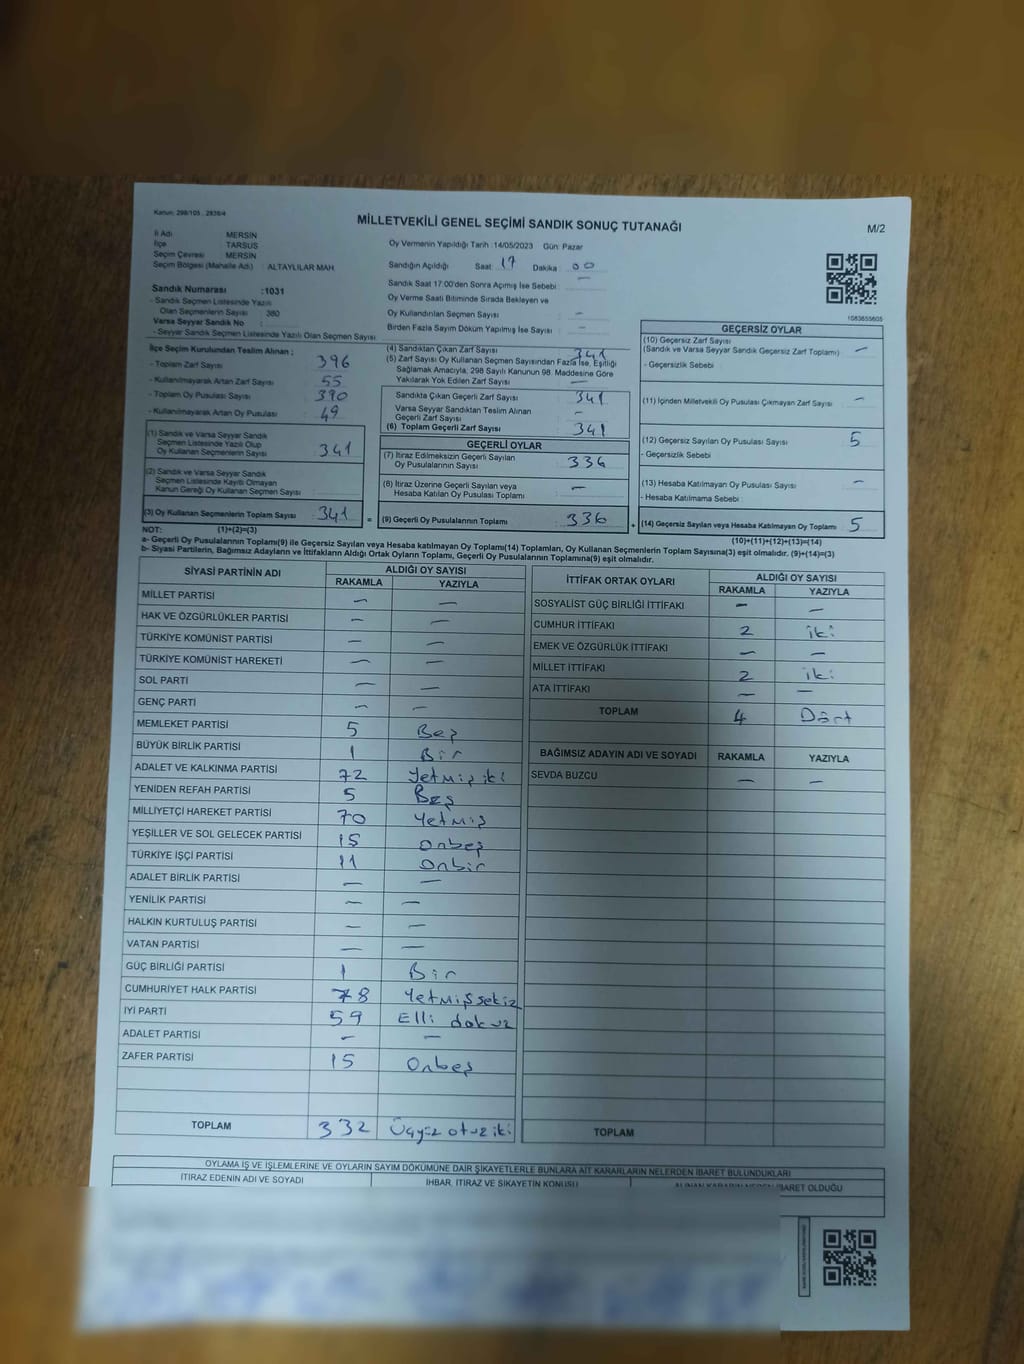 Kanun: 298/105 , 2839/4
MİLLETVEKİLİ GENEL SEÇİMİ SANDIK SONUÇ TUTANAĞI
M/2
İl Adı MERSİN
İlçe TARSUS
Seçim Çevresi MERSİN
Seçim Bölgesi (Mahalle Adı) : ALTAYLILAR MAH
Sandık Numarası :1031
- Sandık Seçmen Listesinde Yazılı
Olan Seçmenlerin Sayısı : 380
Varsa Seyyar Sandık No :
- Seyyar Sandık Seçmen Listesinde Yazılı Olan Seçmen Sayısı
Oy Vermenin Yapıldığı Tarih :14/05/2023 Gün: Pazar
Sandığın Açıldığı Saat: 17 Dakika : 00
Sandık Saat 17:00'den Sonra Açımış İse Sebebi : —
Oy Verme Saati Bitiminde Sırada Bekleyen ve
Oy Kullandırılan Seçmen Sayısı : —
Birden Fazla Sayım Döküm Yapılmış İse Sayısı : —
1083655605
İlçe Seçim Kurulundan Teslim Alınan ;
- Toplam Zarf Sayısı : 396
- Kullanılmayarak Artan Zarf Sayısı : 55
- Toplam Oy Pusulası Sayısı : 390
- Kullanılmayarak Artan Oy Pusulası : 49
(1) Sandık ve Varsa Seyyar Sandık
Seçmen Listesinde Yazılı Olup
Oy Kullanan Seçmenlerin Sayısı : 341
(2) Sandık ve Varsa Seyyar Sandık
Seçmen Listesinde Kayıtlı Olmayan
Kanun Gereği Oy Kullanan Seçmen Sayısı :
(3) Oy Kullanan Seçmenlerin Toplam Sayısı : 341
(4) Sandıktan Çıkan Zarf Sayısı : 341
(5) Zarf Sayısı Oy Kullanan Seçmen Sayısından Fazla İse, Eşitliği
Sağlamak Amacıyla, 298 Sayılı Kanunun 98. Maddesine Göre
Yakılarak Yok Edilen Zarf Sayısı : —
Sandıkta Çıkan Geçerli Zarf Sayısı : 341
Varsa Seyyar Sandıktan Teslim Alınan
Geçerli Zarf Sayısı : -
(6) Toplam Geçerli Zarf Sayısı : 341
GEÇERLİ OYLAR
(7) İtiraz Edilmeksizin Geçerli Sayılan
Oy Pusulalarının Sayısı : 336
(8) İtiraz Üzerine Geçerli Sayılan veya
Hesaba Katılan Oy Pusulası Toplamı : —
= (9) Geçerli Oy Pusulalarının Toplamı : 336
GEÇERSİZ OYLAR
(10) Geçersiz Zarf Sayısı
(Sandık ve Varsa Seyyar Sandık Geçersiz Zarf Toplamı) : —
- Geçersizlik Sebebi :
(11) İçinden Milletvekili Oy Pusulası Çıkmayan Zarf Sayısı : —
(12) Geçersiz Sayılan Oy Pusulası Sayısı : 5
- Geçersizlik Sebebi :
(13) Hesaba Katılmayan Oy Pusulası Sayısı : —
- Hesaba Katılmama Sebebi :
+ (14) Geçersiz Sayılan veya Hesaba Katılmayan Oy Toplamı : 5
NOT: (1)+(2)=(3)
(10)+(11)+(12)+(13)=(14)
a- Geçerli Oy Pusulalarının Toplamı(9) ile Geçersiz Sayılan veya Hesaba katılmayan Oy Toplamı(14) Toplamları, Oy Kullanan Seçmenlerin Toplam Sayısına(3) eşit olmalıdır. (9)+(14)=(3)
b- Siyasi Partilerin, Bağımsız Adayların ve İttifakların Aldığı Ortak Oyların Toplamı, Geçerli Oy Pusulalarının Toplamına(9) eşit olmalıdır.
SİYASİ PARTİNİN ADI ALDIĞI OY SAYISI
RAKAMLA YAZIYLA
MİLLET PARTİSİ — —
HAK VE ÖZGÜRLÜKLER PARTİSİ — —
TÜRKİYE KOMÜNİST PARTİSİ — —
TÜRKİYE KOMÜNİST HAREKETİ — —
SOL PARTİ — —
GENÇ PARTİ — —
MEMLEKET PARTİSİ 5 Beş
BÜYÜK BİRLİK PARTİSİ 1 Bir
ADALET VE KALKINMA PARTİSİ 72 Yetmiş iki
YENİDEN REFAH PARTİSİ 5 Beş
MİLLİYETÇİ HAREKET PARTİSİ 70 Yetmiş
YEŞİLLER VE SOL GELECEK PARTİSİ 15 Onbeş
TÜRKİYE İŞÇİ PARTİSİ 11 Onbir
ADALET BİRLİK PARTİSİ — —
YENİLİK PARTİSİ — —
HALKIN KURTULUŞ PARTİSİ — —
VATAN PARTİSİ — —
GÜÇ BİRLİĞİ PARTİSİ 1 Bir
CUMHURİYET HALK PARTİSİ 78 Yetmişsekiz
İYİ PARTİ 59 Elli dokuz
ADALET PARTİSİ — —
ZAFER PARTİSİ 15 Onbeş
TOPLAM 332 Üçyüz otuz iki
İTTİFAK ORTAK OYLARI ALDIĞI OY SAYISI
RAKAMLA YAZIYLA
SOSYALİST GÜÇ BİRLİĞİ İTTİFAKI — —
CUMHUR İTTİFAKI 2 iki
EMEK VE ÖZGÜRLÜK İTTİFAKI — —
MİLLET İTTİFAKI 2 iki
ATA İTTİFAKI — —
TOPLAM 4 Dört
BAĞIMSIZ ADAYIN ADI VE SOYADI RAKAMLA YAZIYLA
SEVDA BUZCU — —
TOPLAM
OYLAMA İŞ VE İŞLEMLERİNE VE OYLARIN SAYIM DÖKÜMÜNE DAİR ŞİKAYETLERLE BUNLARA AİT KARARLARIN NELERDEN İBARET BULUNDUKLARI
İTİRAZ EDENİN ADI VE SOYADI İHBAR, İTİRAZ VE ŞİKAYETİN KONUSU ALINAN KARARIN NEDEN İBARET OLDUĞU